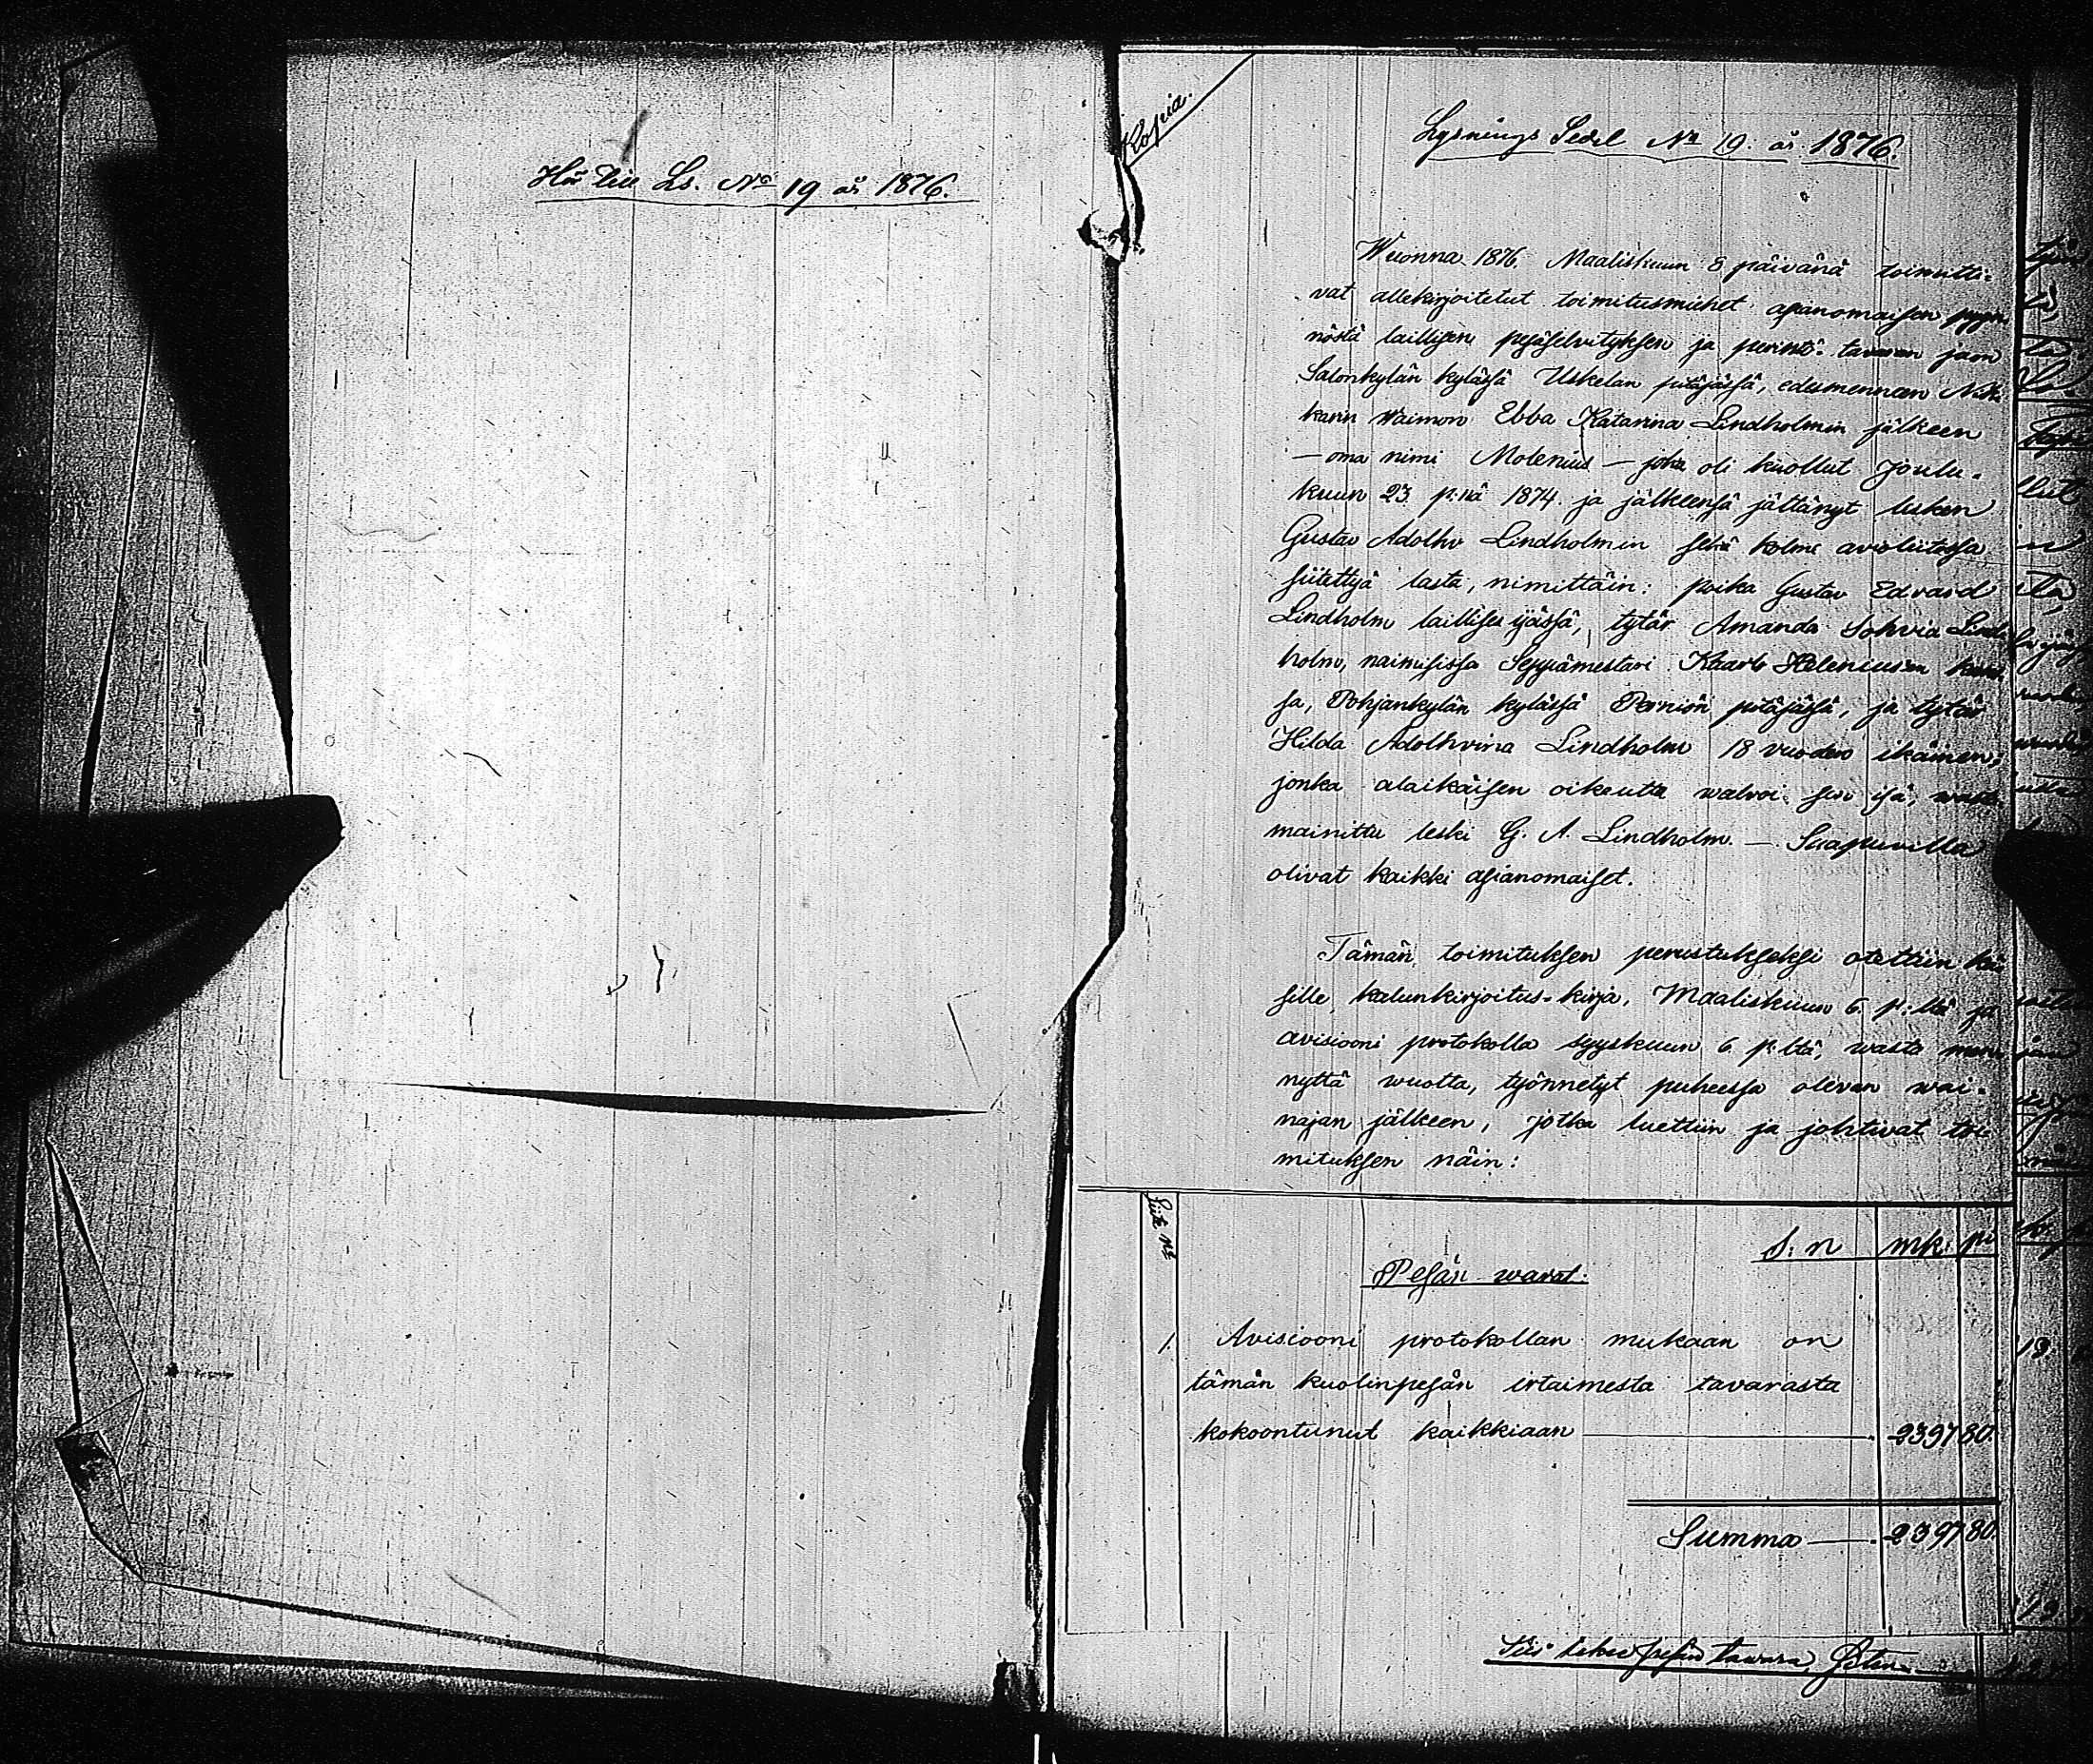 Hör till Ls. No 19 år 1876.
Kopia.
Lysnings Sedel No 19. år 1876.
Wuonna 1876. Maaliskuun 8 päivänä toimitti-
vat allekirjoitetut toimitusmiehet asianomaisen pyyn-
nöstä laillisen pesäselvityksen ja perintö-tavaran jaon
Salonkylän kylässä Uskelan pitäjässä, edesmennen Nik-
karin Waimon Ebba Katarina Lindholmin jälkeen
— oma nimi Molenius — joka oli kuollut Joulu-
kuun 23 p:nä 1874. ja jälkeensä jättänyt lesken
Gustav Adolhv Lindholmin sekä kolme avioliitossa
siitettyä lasta, nimittäin: poika Gustav Edvard
Lindholm laillises ijässä, tytär Amanda Sohvia Lind-
holm, naimisissa Seppämestari Kaarlo Helenius'en kans-
sa, Pohjankylän kylässä Perniön pitäjässä, ja tytär
Hilda Adolhvina Lindholm 18 vuoden ikäinen,
jonka alaikäisen oikeutta walvoi sen isä,
mainittu leski G. A. Lindholm. — Saapuvilla
olivat kaikki asianomaiset.
Tämän toimituksen perustukseksi otettiin kä-
sille kalunkirjoitus-kirja, Maaliskuun 6 p:ltä ja
avisiooni protokolla syyskuun 6 p:ltä, wasta men-
nyttä wuotta, työnnetyt puheessa olevan wai-
najan jälkeen, jotka luettiin ja johtivat toi-
mituksen näin:
Liite No
S: n mk: pi
Pesän warat:
1. Avisiooni protokollan mukaan on
tämän kuolinpesän irtaimesta tavarasta
kokoontunut kaikkiaan 2397 80.
Summa — 2397 80.